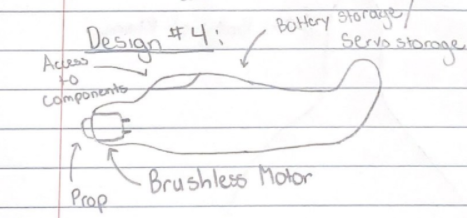 Design #4:
Battery storage/
Servo storage
Access
to
components
Brushless Motor
Prop